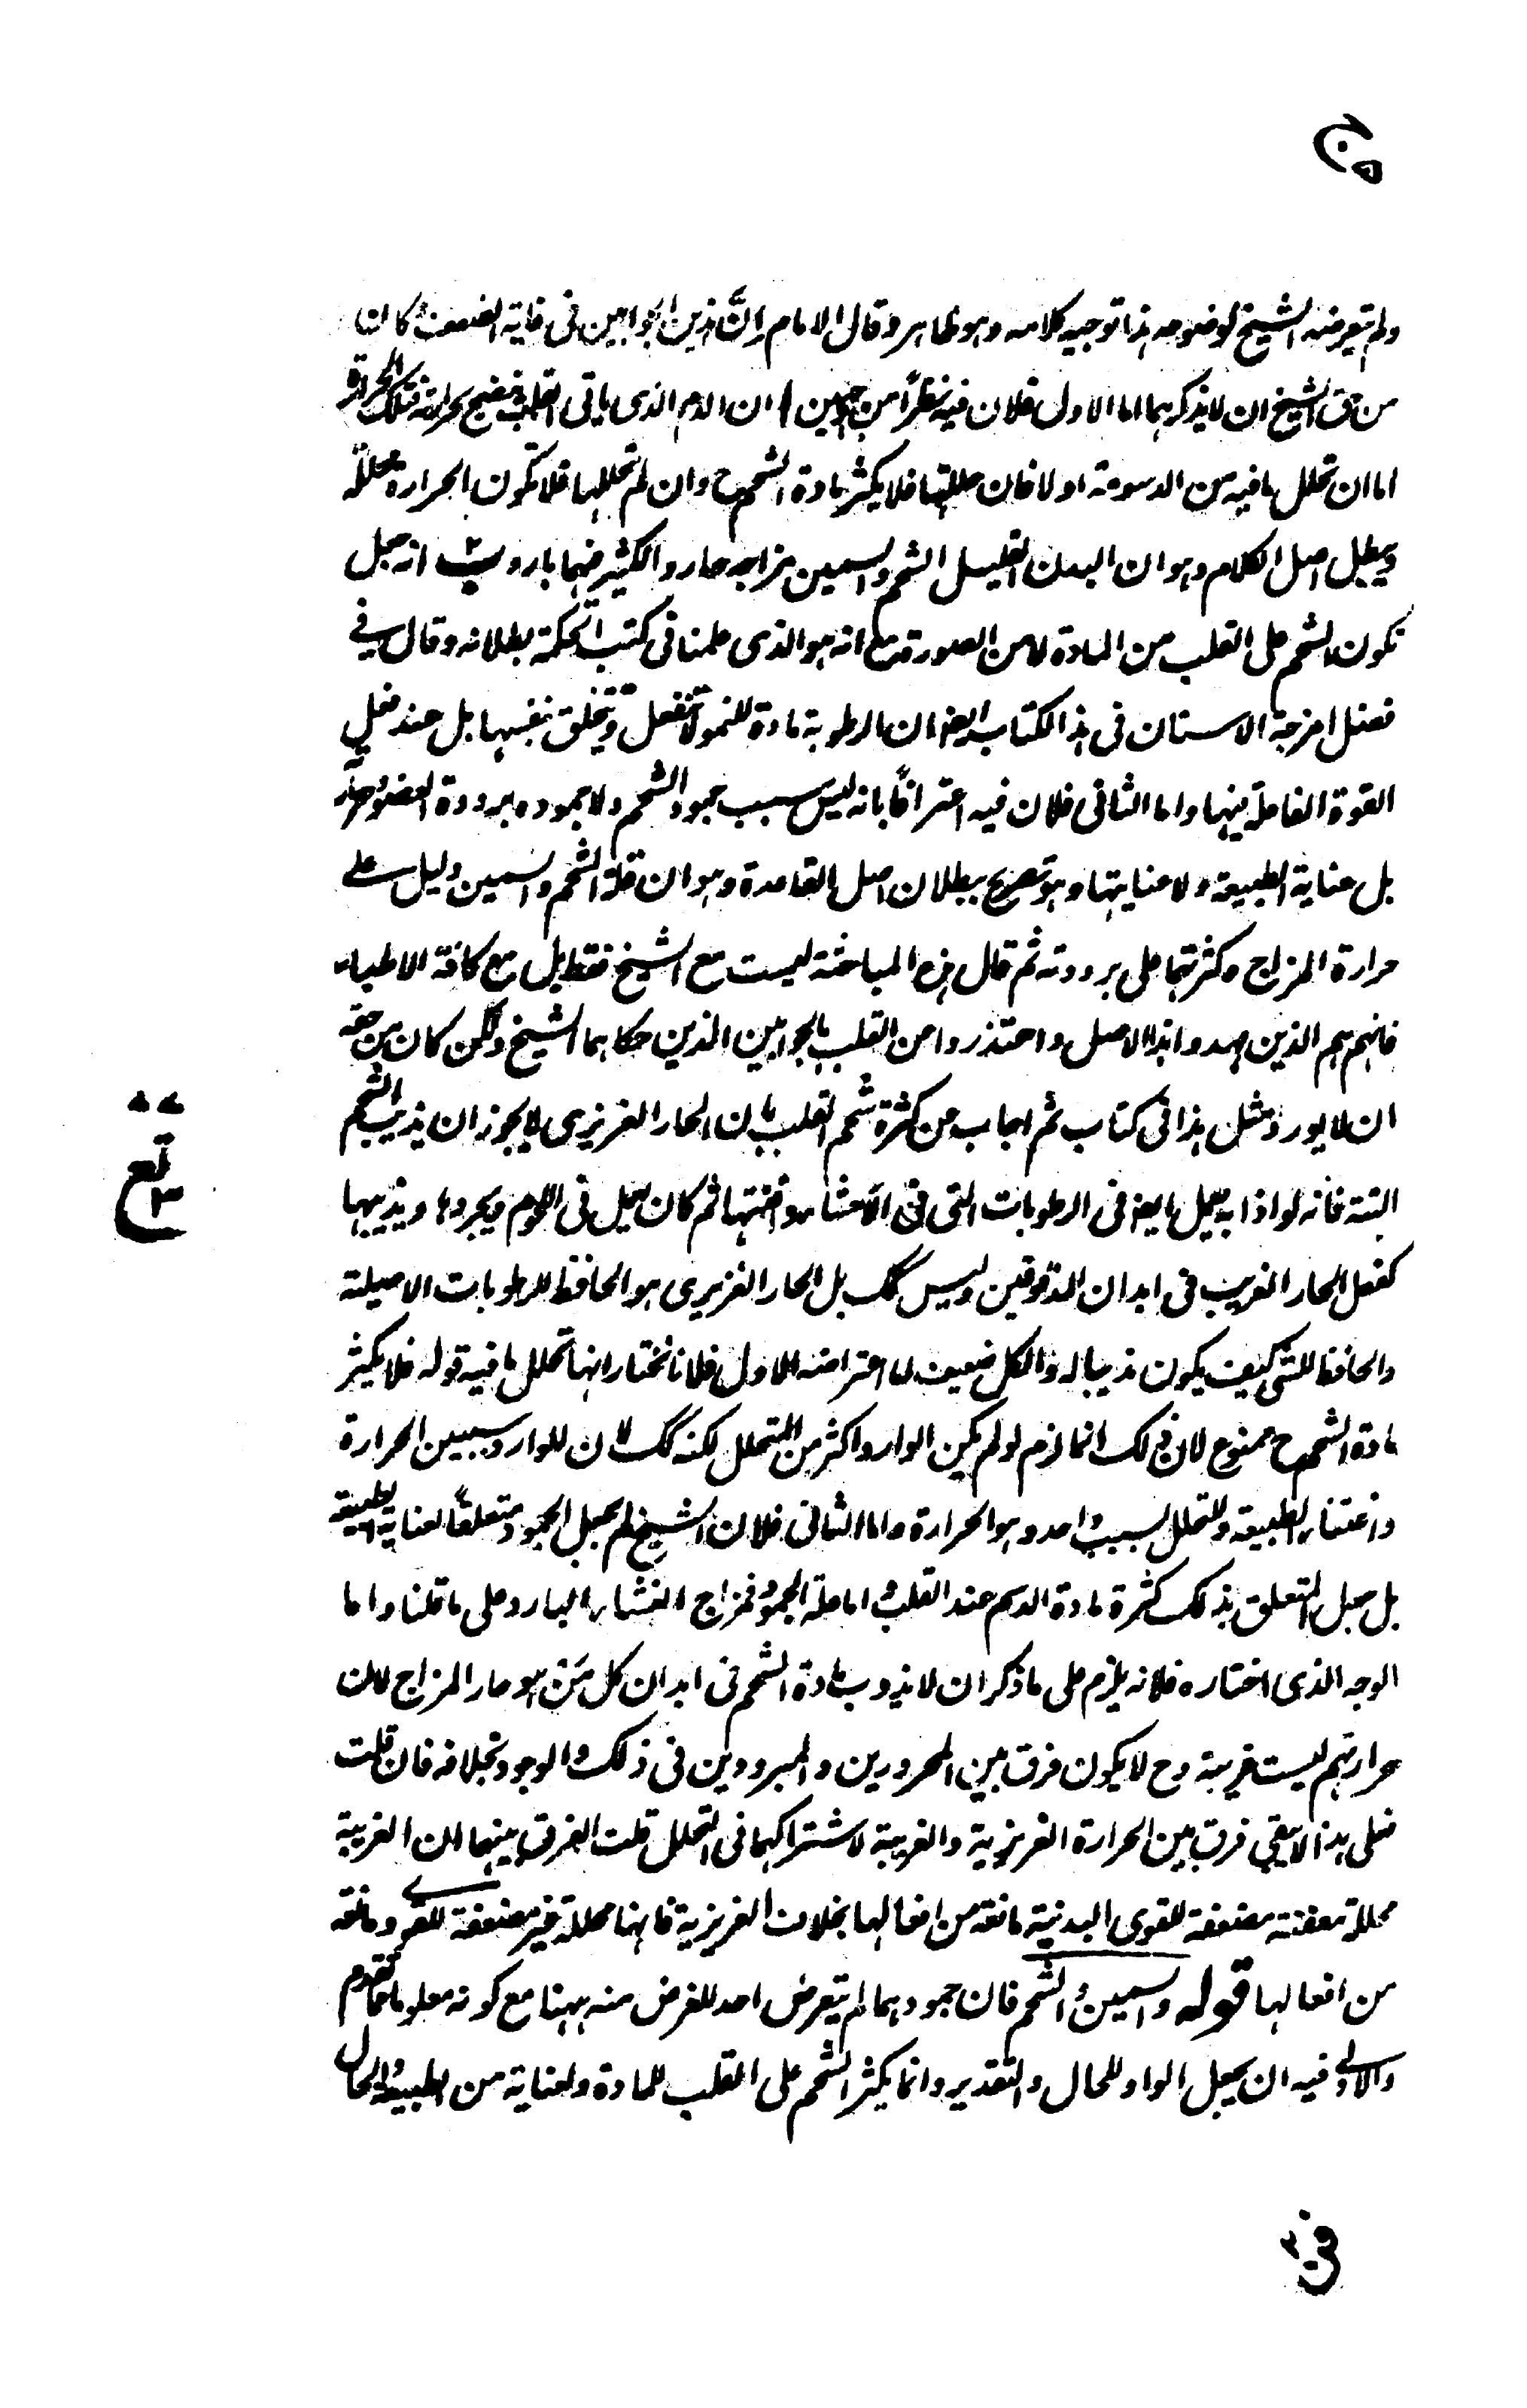 ولم يتعرضه الشيخ لوضوحه هذا توجيه كلامه وهو ظاهر وقال الامام اِنَّ هذين الجوابين فى غاية الضعف وكان
من حق الشيخ ان لا يذكرهما اما الاول فلان فيه نظرًا من وجهين ا ان الدم الذى ياتى القلب فينضج بحرارته فتلك الحرارة
اما ان تحلل ما فيه من الدسومة اولا فان حللتها فلا يكثر مادة الشحم ح وان لم تحللها فلا تكون الحرارة محللة
ويبطل اصل الكلام وهو ان البدن القليل الشحم والسمين مزاجه حار والكثير منهما بارد ب انه جعل
تكون الشحم على القلب من المادة لا من الصورة مع انه هو الذى علمنا فى كتب الحكمة بطلانه وقال فى
فصل امزجة الاسنان فى هذا الكتاب ايضا ان الرطوبة مادة للنمو لا تنفعل وتتخلق بنفسها بل عند فعل
القوة الفاعلة فيها واما الثانى فلان فيه اعترافًا بانه ليس سبب جمود الشحم ولا جموده برودة العضو وحره
بل عناية الطبيعة ولا عنايتها وهو تصريح ببطلان اصل القاعدة وهو ان قلة الشحم والسمين دليل على
حرارة المزاج وكثرتهما على برودته ثم قال هذه المباحثة ليست مع الشيخ فقط بل مع كافة الاطباء
فانهم هم الذين مهدوا هذا الاصل واعتذروا من القلب بالجوابين الذين حكاهما الشيخ ولكن كان من حقه
ان لا يورد مثل هذا فى كتاب ثم اجاب من كثرة شحم القلب بان الحار الغريزى لا يجوز ان يذيب الشحم
البتة فانه لو اذابه لعمل ايضا فى الرطوبات التى فى الاحشاء وافنتها ثم كان يعمل فى اللحوم ويجردها ويذيبها
كفعل الحار الغريب فى ابدان المدقوقين وليس كك بل الحار الغريزى هو الحافظ للرطوبات الاصيلة
والحافظ للشئ كيف يكون مذيبا له والكل ضعيف اما اعتراضه الاول فلانا نختار انها تحلل ما فيه قوله فلا يكثر
مادة الشحم ح ممنوع لان ذلك انما لزم لو لم يكن الوارد اكثر من المتحلل لكنه كك لان للوارد سببين الحرارة
واعتناء الطبيعة وللتحلل سبب واحد وهو الحرارة واما الثانى فلان الشيخ لم يجعل الجمود متعلقًا بعناية الطبيعة
بل جعل المتعلق بذلك كثرة مادة الدسم عند القلب واما علة الجمود فمزاج الغشاء البارد على ما قلنا واما
الوجه الذى اختاره فلانه يلزم على ما ذكر ان لا يذوب مادة الشحم فى ابدان كل مَن هو حار المزاج لان
حرارتهم ليست غريبة وح لا يكون فرق بين المحرورين والمبرودين فى ذلك والوجود بخلافه فان قلت
فعلى هذا لا يبقى فرق بين الحرارة الغريزية والغريبة لاشتراكهما فى التحلل قلت الفرق بينهما ان الغريبة
محللة معفنة مضعفة للقوى البدنية مانعة من افعالها بخلاف الغريزية فانها محللة غير مضعفة للقوى ومانعة
من افعالها قوله والسمين والشحم فان جمودهما لم يتعرض احد للغرض منه ههنا مع كونه معلوما مما تقدم
والاولى فيه ان يجعل الواو للحال والتقدير وانما يكثر الشحم على القلب للمادة ولعناية من الطبيعة والحال